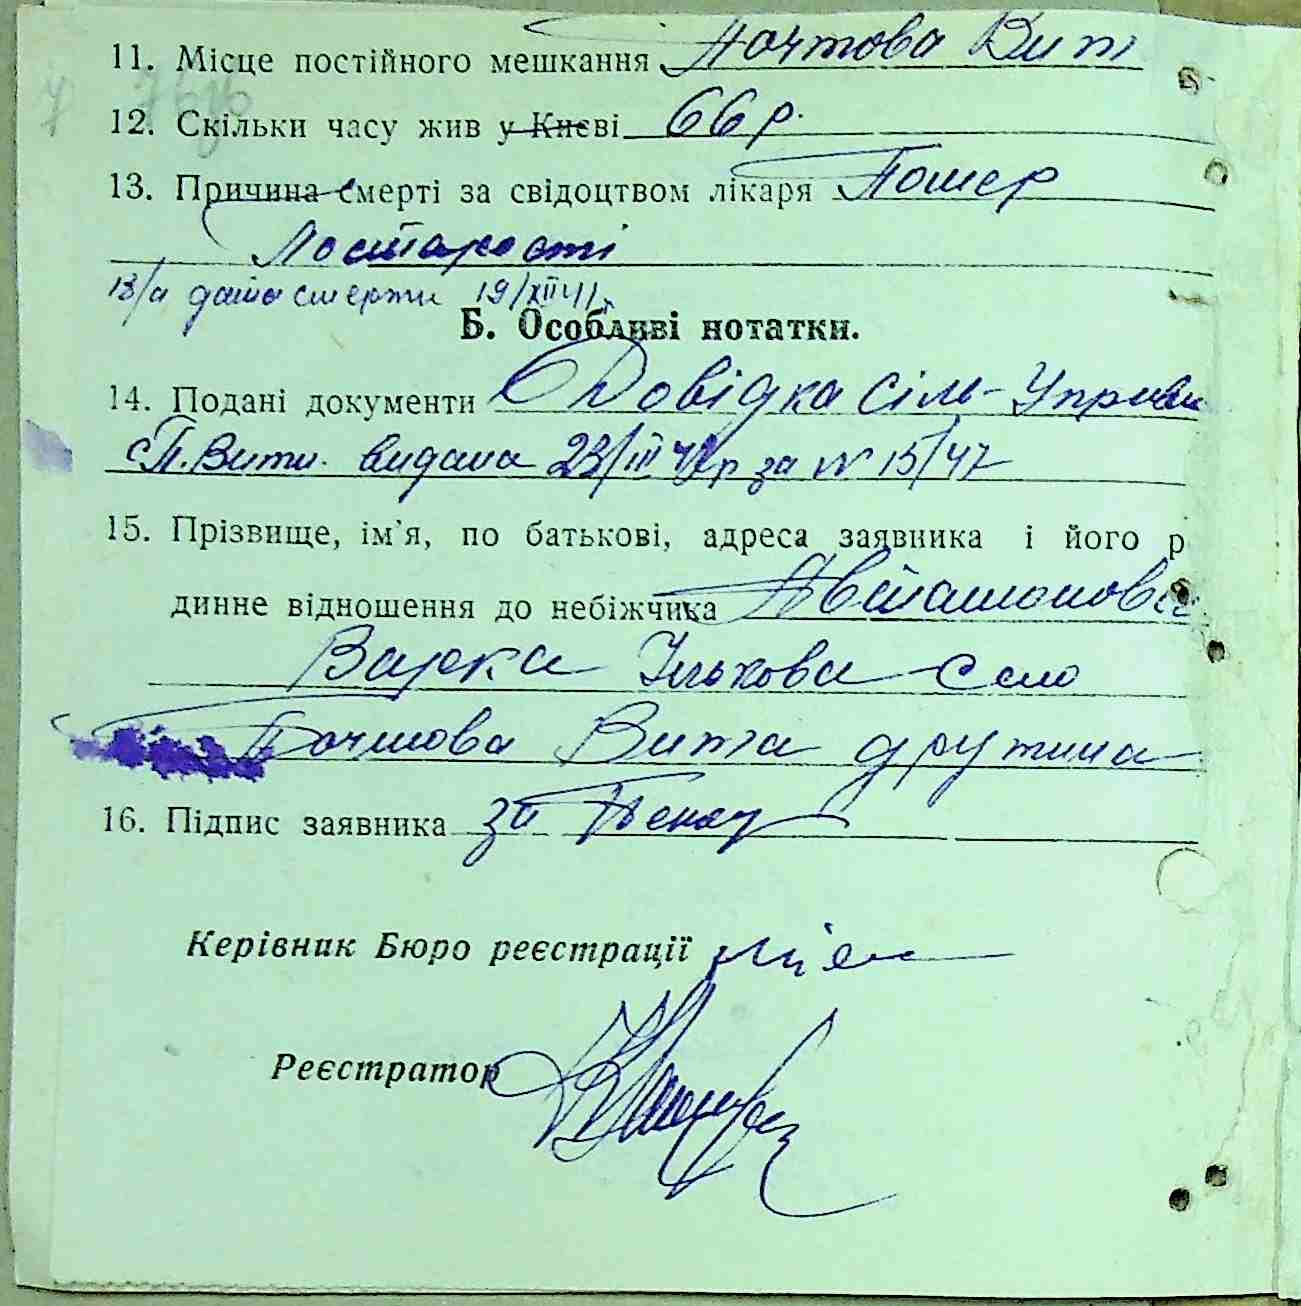 11. Місце постійного мешкання Почтова Вит
12. Скільки часу жив у Києві 66 р.
13. Причина смерті за свідоцтвом лікаря Помер
По старості
13/а дата смерти 19/XII 41 р.
Б. Особливі нотатки.
14. Подані документи Довідка Сіль-Управи
с П. Вити. видана 23/III 42 р за № 15/47
15. Прізвище, ім'я, по батькові, адреса заявника і його р
динне відношення до небіжчика Автамонова
Варка Ількова село
Почтова Вита дружина
16. Підпис заявника за
Керівник Бюро реєстрації
Реєстратор